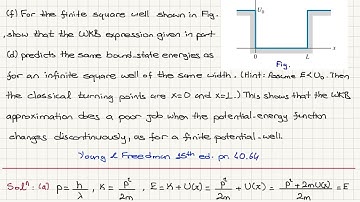 (f) For the finite square well shown in Fig.
, show that the WKB expression given in part
(d) predicts the same bound-state energies as
for an infinite square well of the same width. (Hint: Assume E<U₀. Then
the classical turning points are x=0 and x=L.) This shows that the WKB
approximation does a poor job when the potential-energy function
changes discontinuously, as for a finite potential-well.
Young & Freedman 15th ed. pr. 40.64
Solⁿ: (a) p = h/λ , K = p²/2m , E = K + U(x) = p²/2m + U(x) = p² + 2mU(x)/2m = E
U₀
0 L x
Fig.